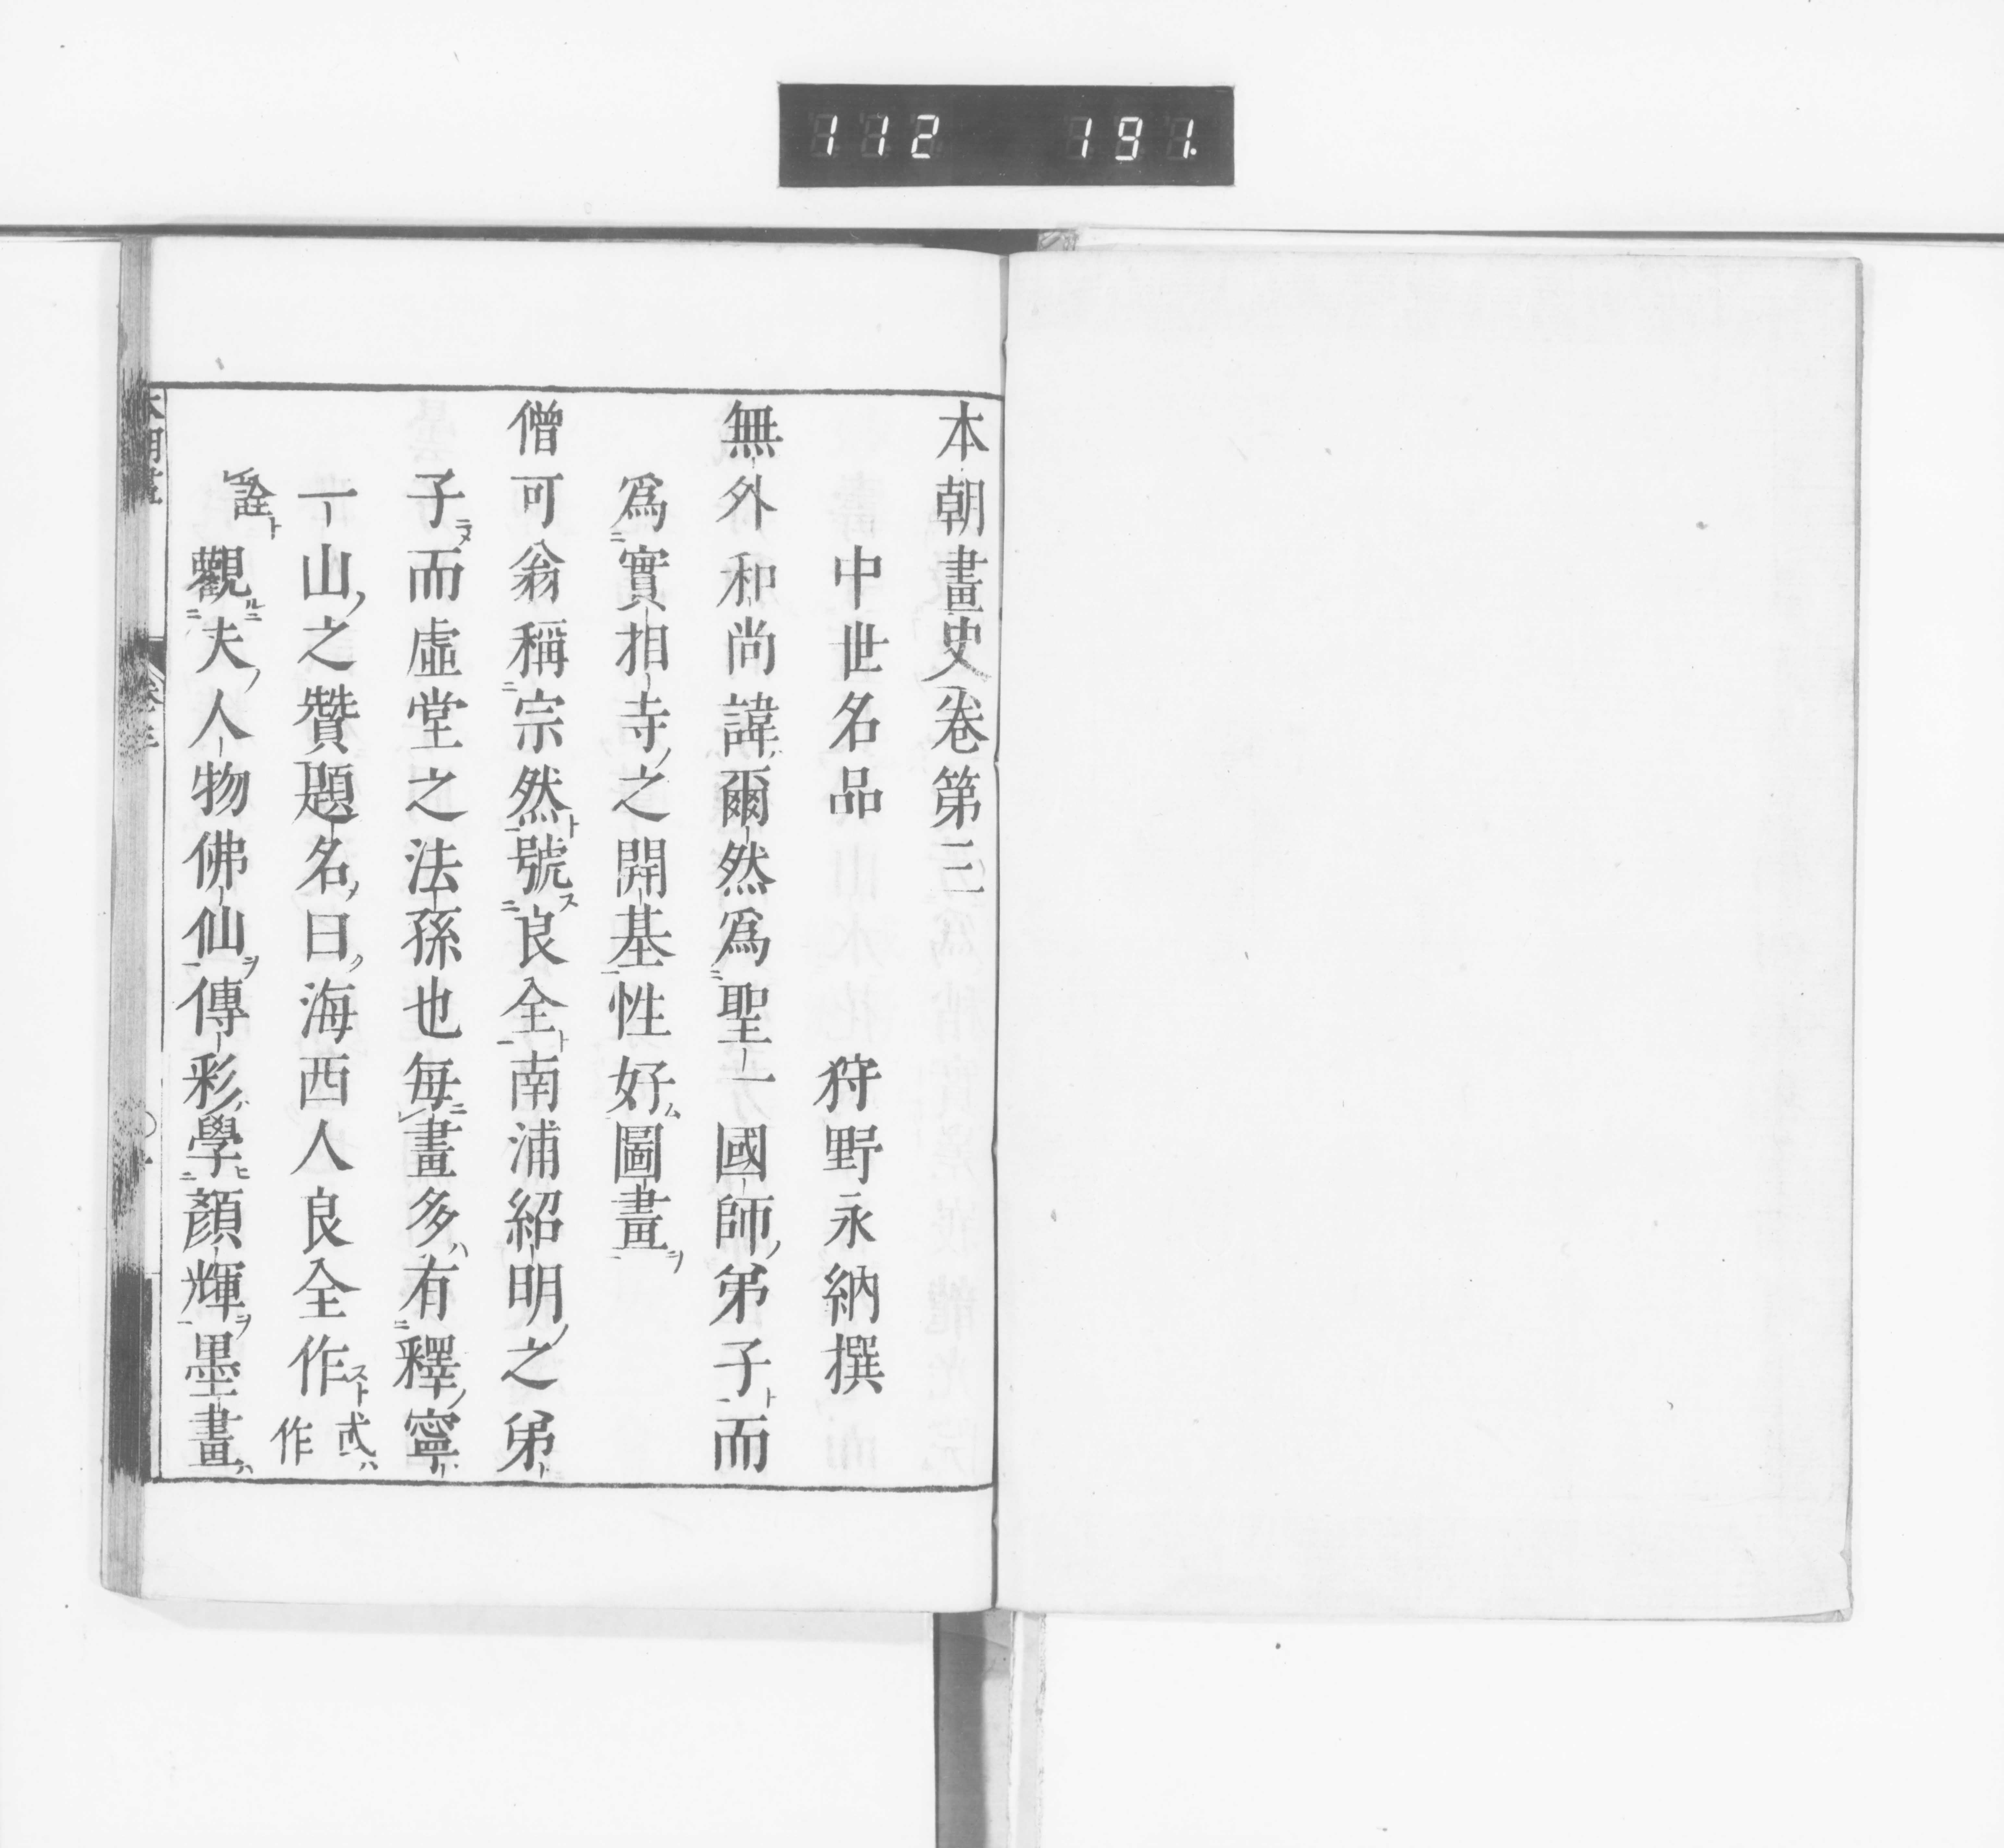 112 191.
本朝畫史卷第三
中世名品 狩野永納撰
無外和尚諱爾然爲聖一國師弟子而
爲實相寺之開基性好圖畫
僧可翁稱宗然號良全南浦紹明之弟
子而虛堂之法孫也每畫多有釋寧
一山之贊題名曰海西人良全作 或作
詮 觀夫人物佛仙傳彩學顏輝墨畫